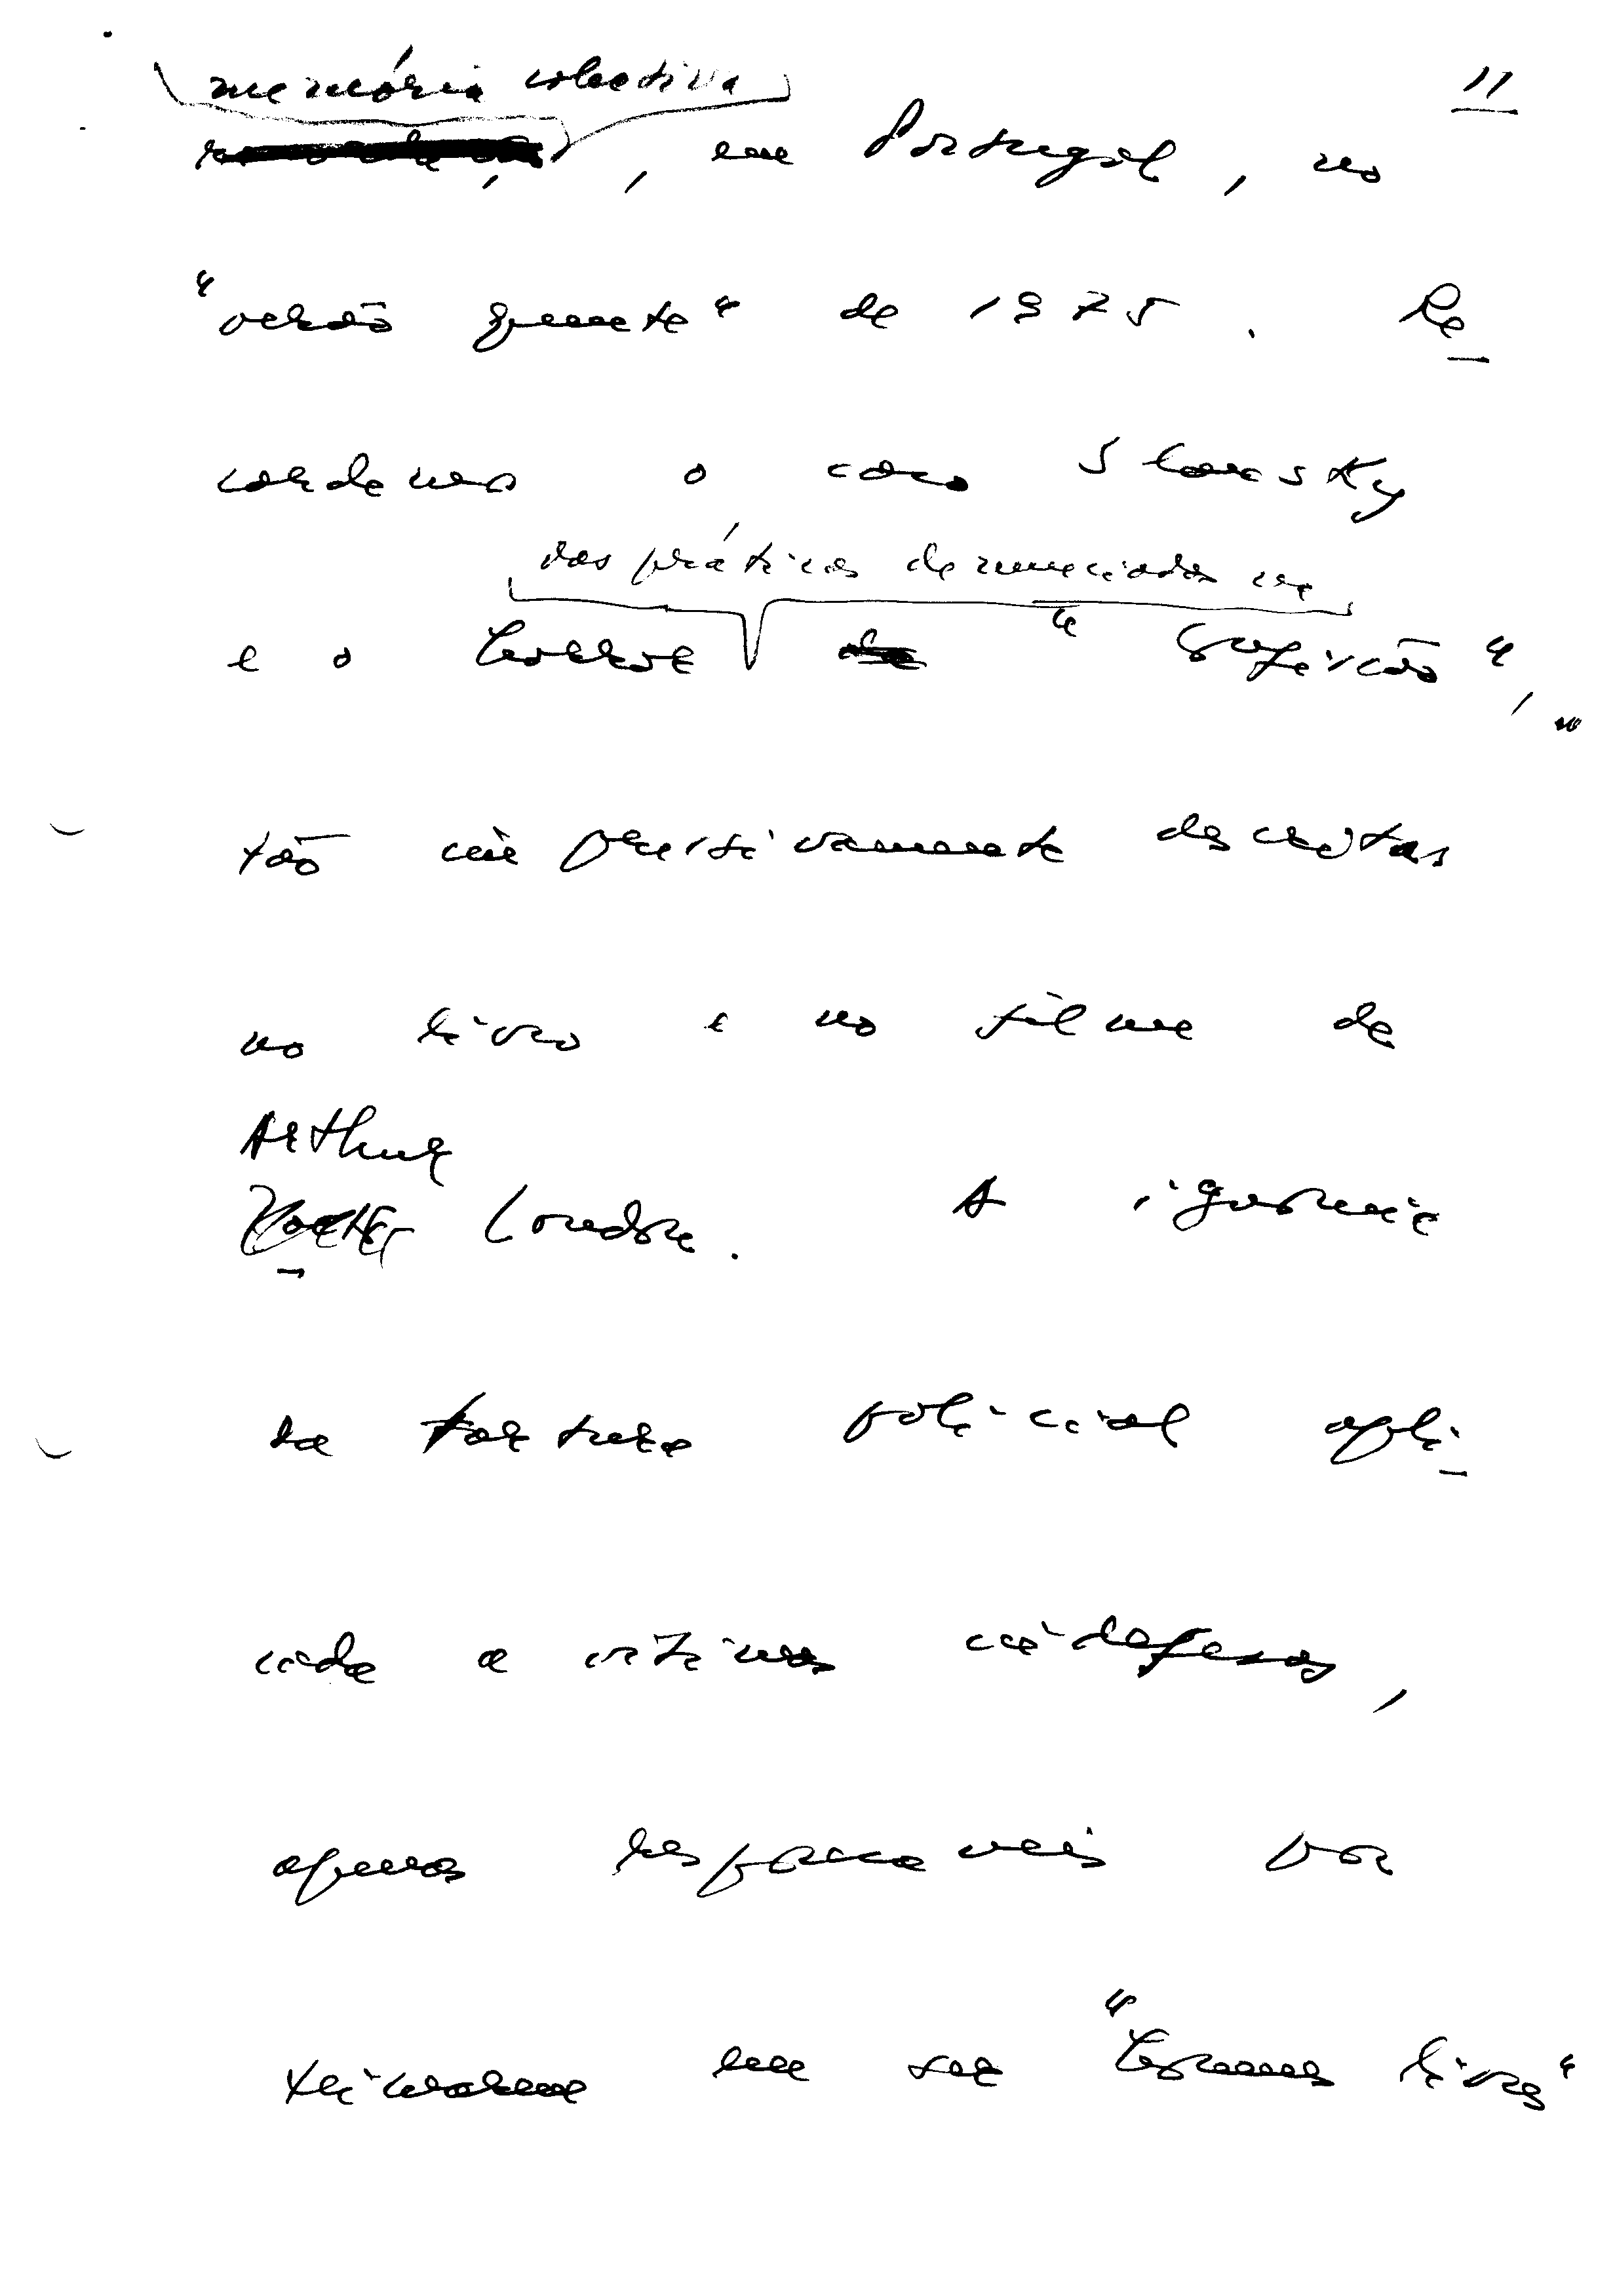 memória colectiva
11
, em Portugal, no
"verão quente" de 1975. Re-
cordemos o caso Slansky
das práticas denunciadas na
e o horror "Confissão",
tão impressivamente descritas
no livro e no filme de
Arthur
London. A ignomínia
da tortura policial apli-
cada a vítimas indefesas,
apenas responsáveis por
teimarem em ser "homens livres"